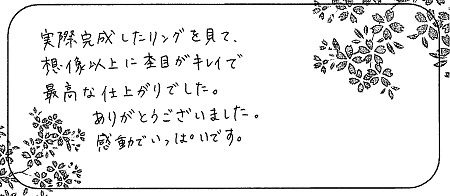 実際完成したリングを見て、
想像以上に杢目がキレイで
最高な仕上がりでした。
ありがとうございました。
感動でいっぱいです。